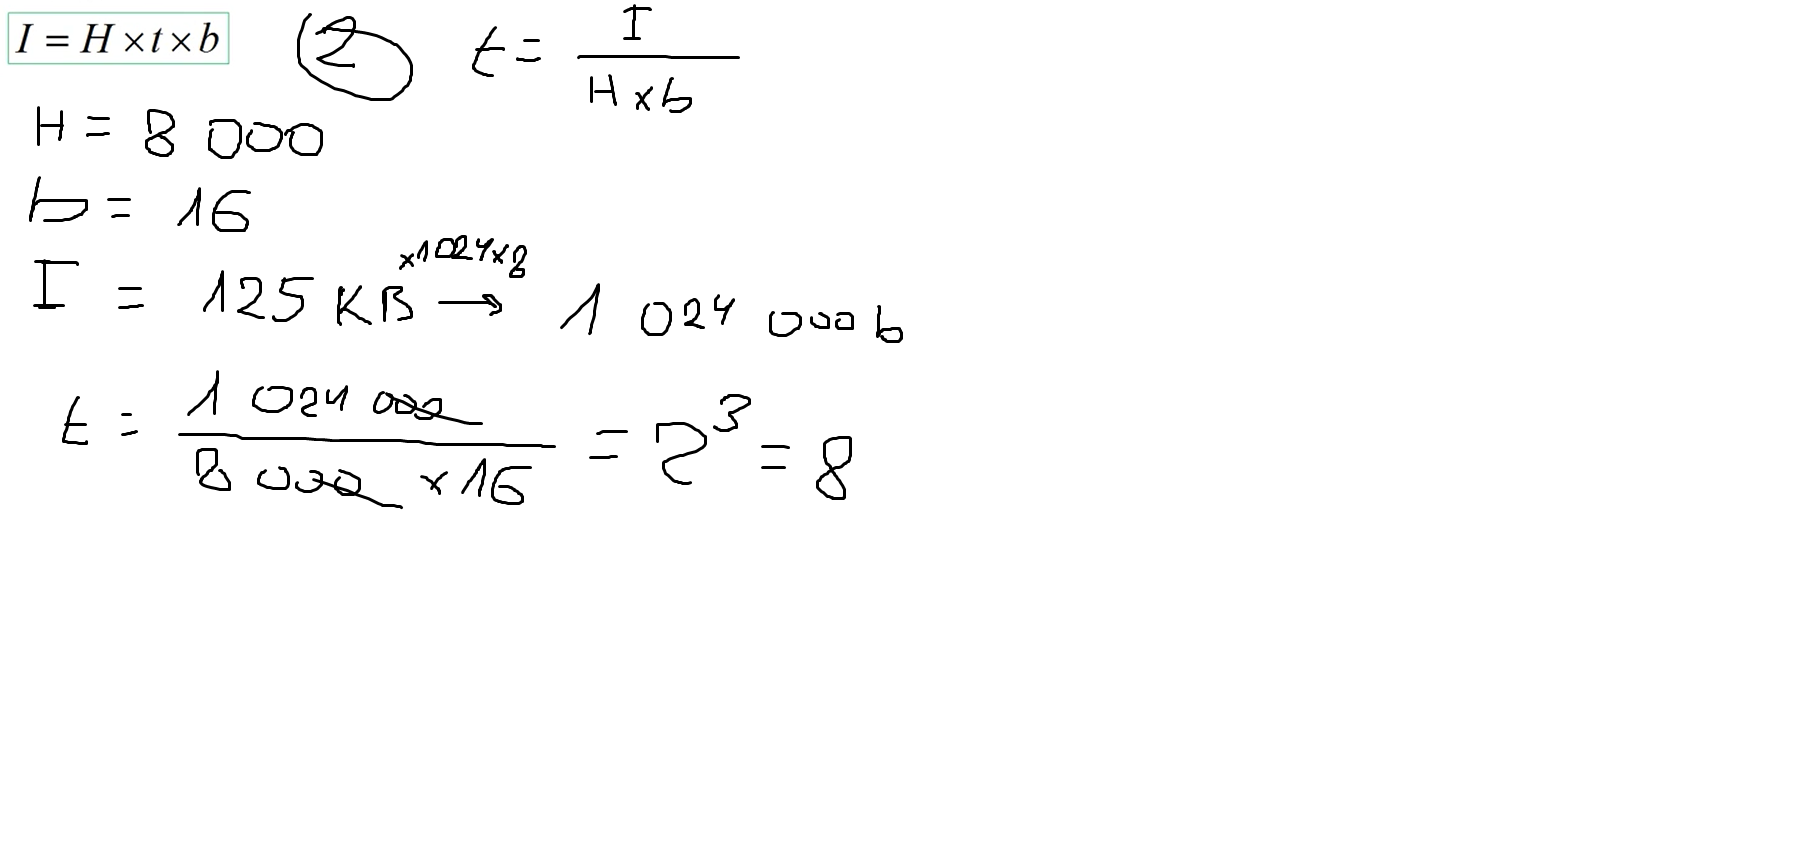 I = H × t × b ② t = I / (H × b)
H = 8 000
b = 16
×1024×8
I = 125 KB → 1 024 000 b
t = 1 024 000 / (8 000 × 16) = 2³ = 8